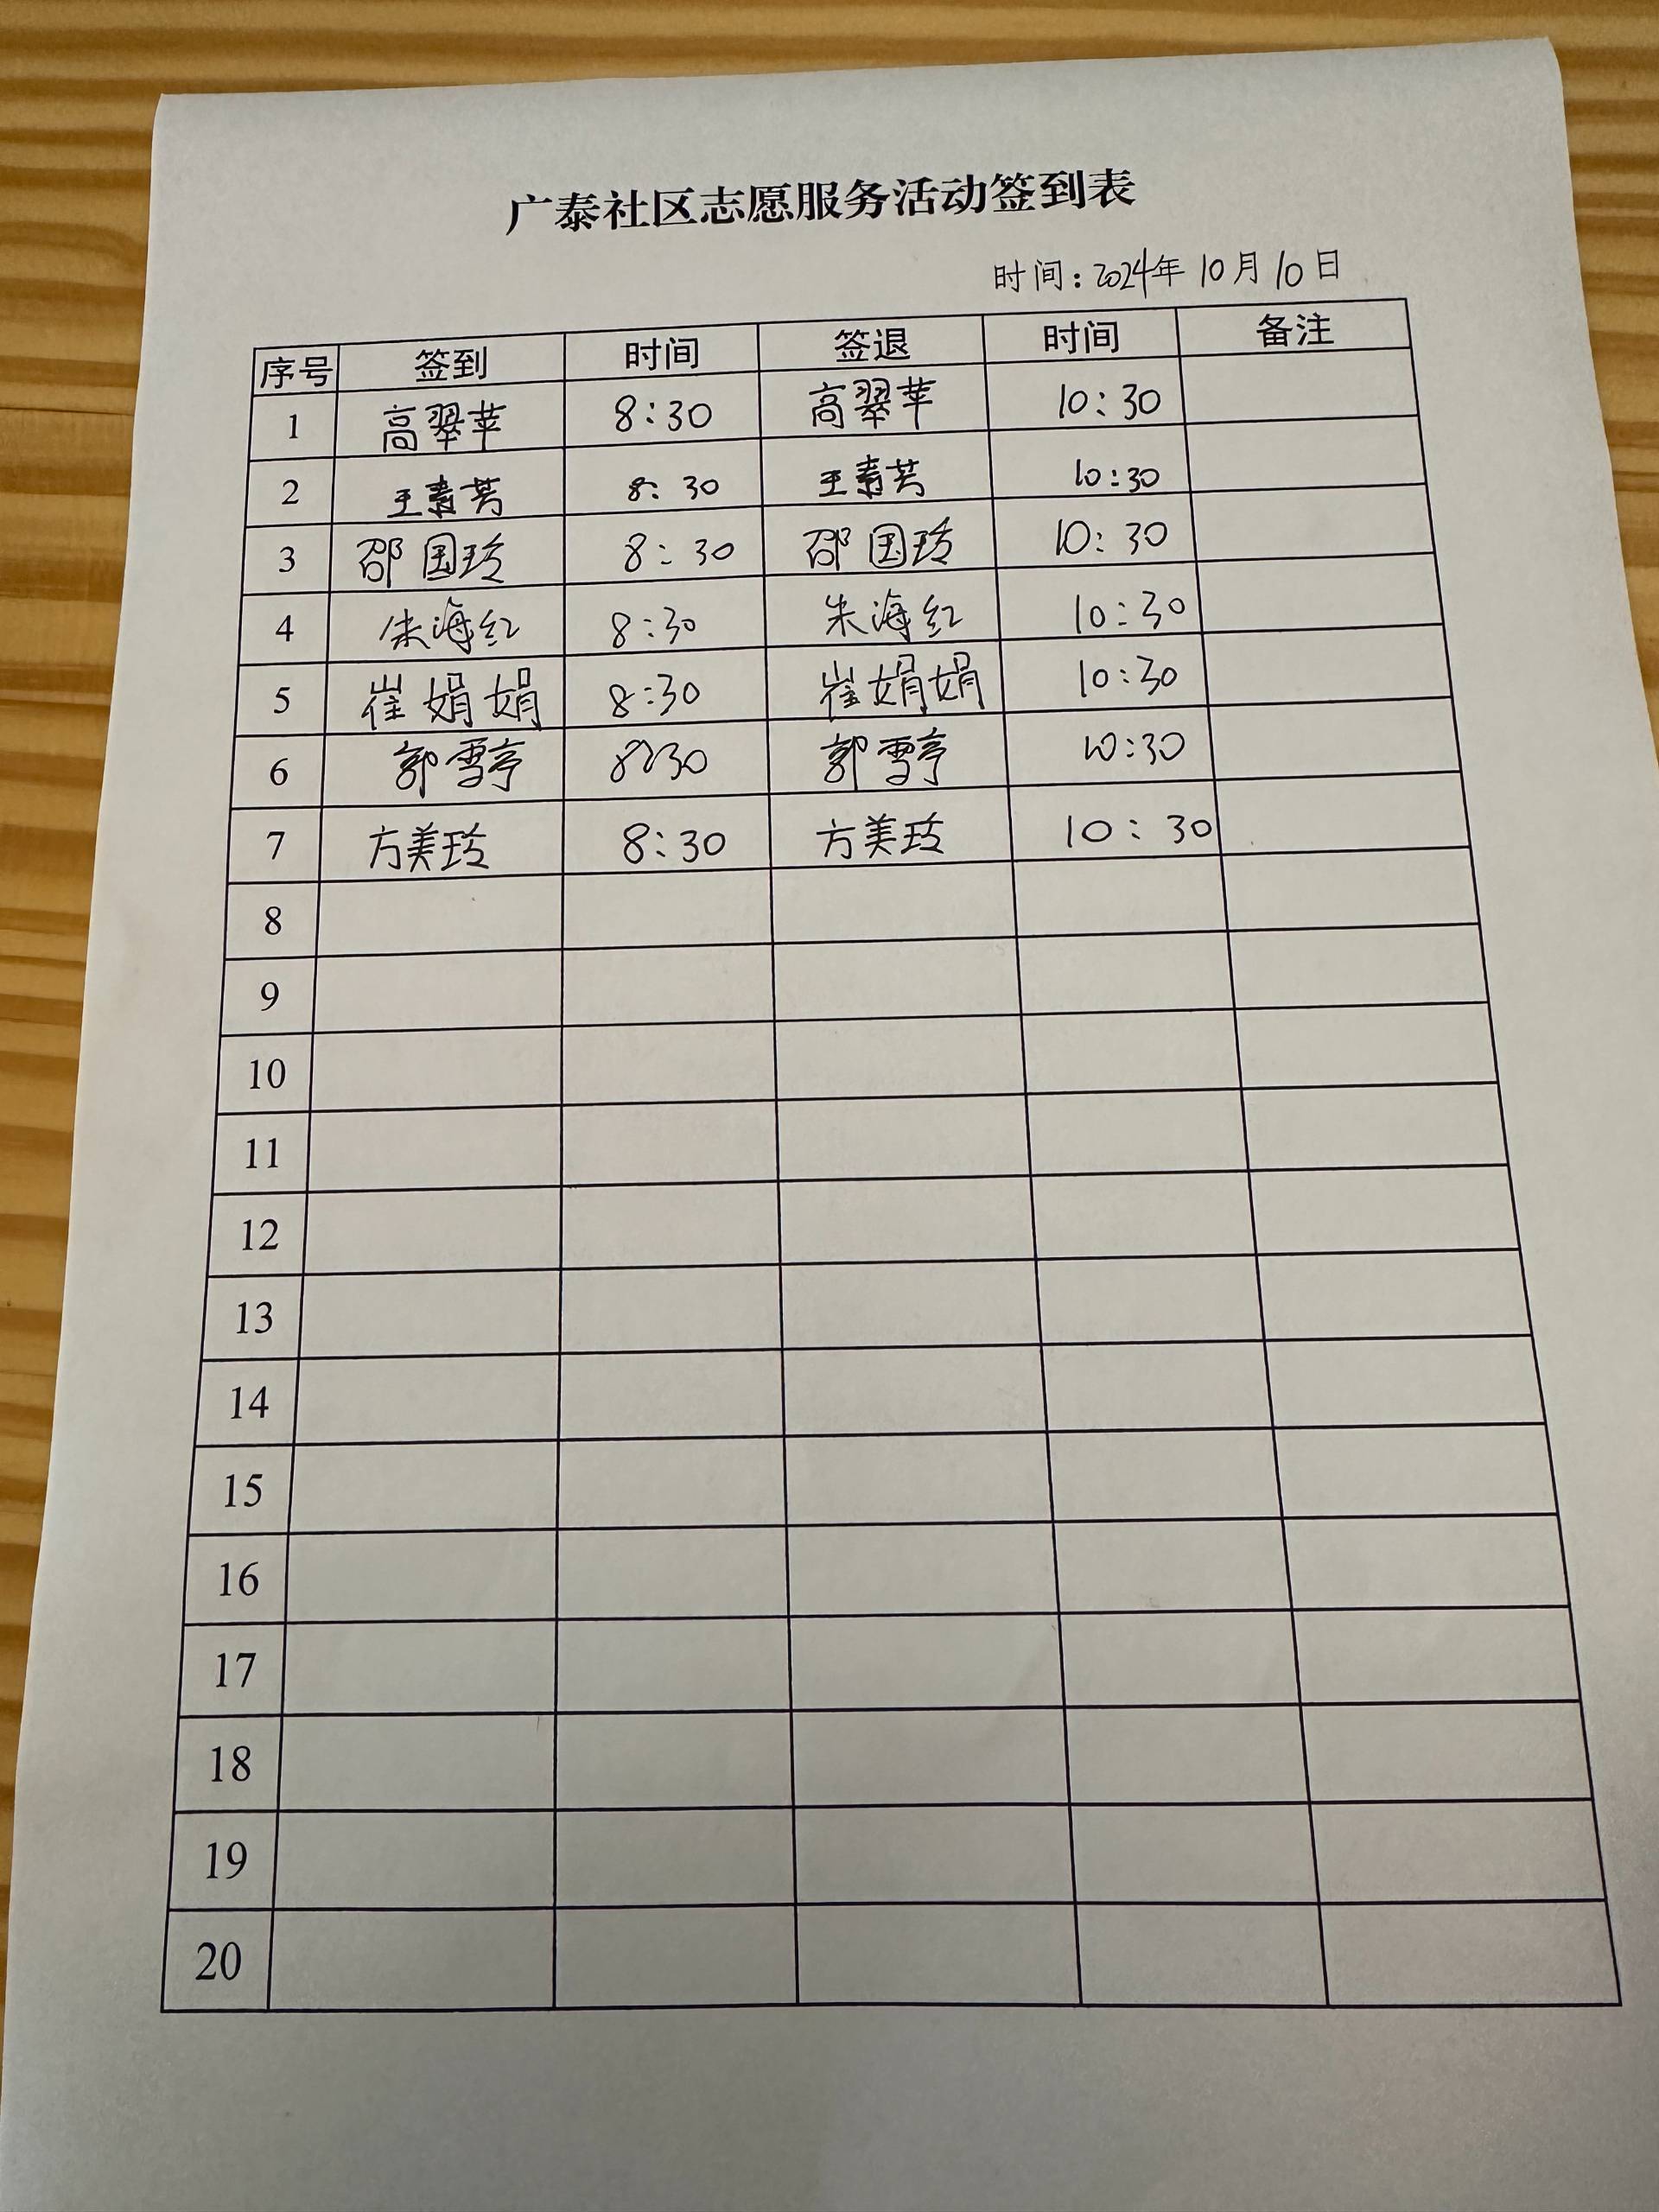 广泰社区志愿服务活动签到表
时间：2024年10月10日
序号 签到 时间 签退 时间 备注
1 高翠苹 8:30 高翠苹 10:30
2 王素芳 8:30 王素芳 10:30
3 邵国玲 8:30 邵国玲 10:30
4 朱海红 8:30 朱海红 10:30
5 崔娟娟 8:30 崔娟娟 10:30
6 郭雪亭 8:30 郭雪亭 10:30
7 方美玲 8:30 方美玲 10:30
8
9
10
11
12
13
14
15
16
17
18
19
20